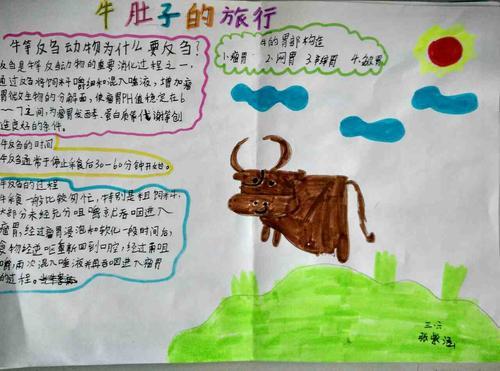 牛肚子的旅行
牛等反刍动物为什么要反刍?
反刍是牛等反刍动物的重要消化过程之一,
通过反刍将饲料嚼细和混入唾液,增加瘤
胃微生物的分解面,使瘤胃PH值稳定在6
~7之间,为瘤胃
蛋白质等代谢等创
造良好的条件。
牛的胃部构造
1.瘤胃 2.网胃 3.瓣胃 4.皱胃
牛反刍的时间
牛反刍通常于停止采食后30-60分钟开始。
牛反刍的过程
牛采食一般比较匆忙,特别是粗饲料,
大部分未经充分咀嚼就吞咽进入
瘤胃,经过瘤胃浸泡和软化一段时间后,
食物经逆呕重新回到口腔,经过再咀
嚼,再次混入唾液并再吞咽进入瘤胃
的过程。
三.六
张紫涵